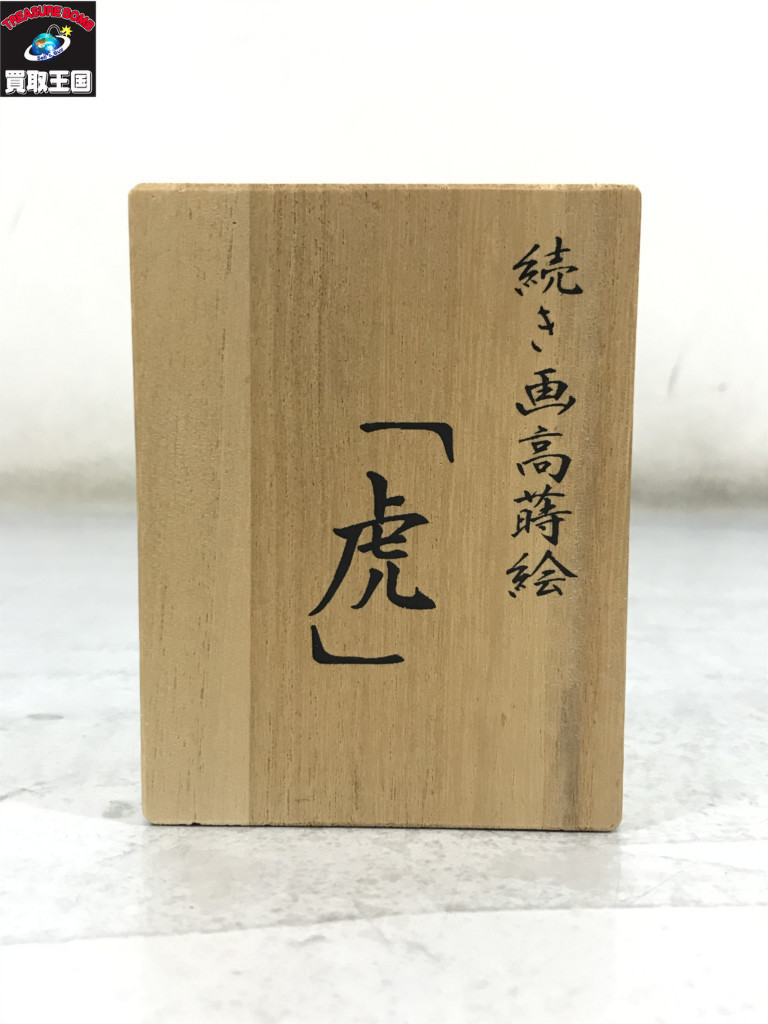 TREASURE BOMB
買取王国
続き画高蒔絵
「虎」